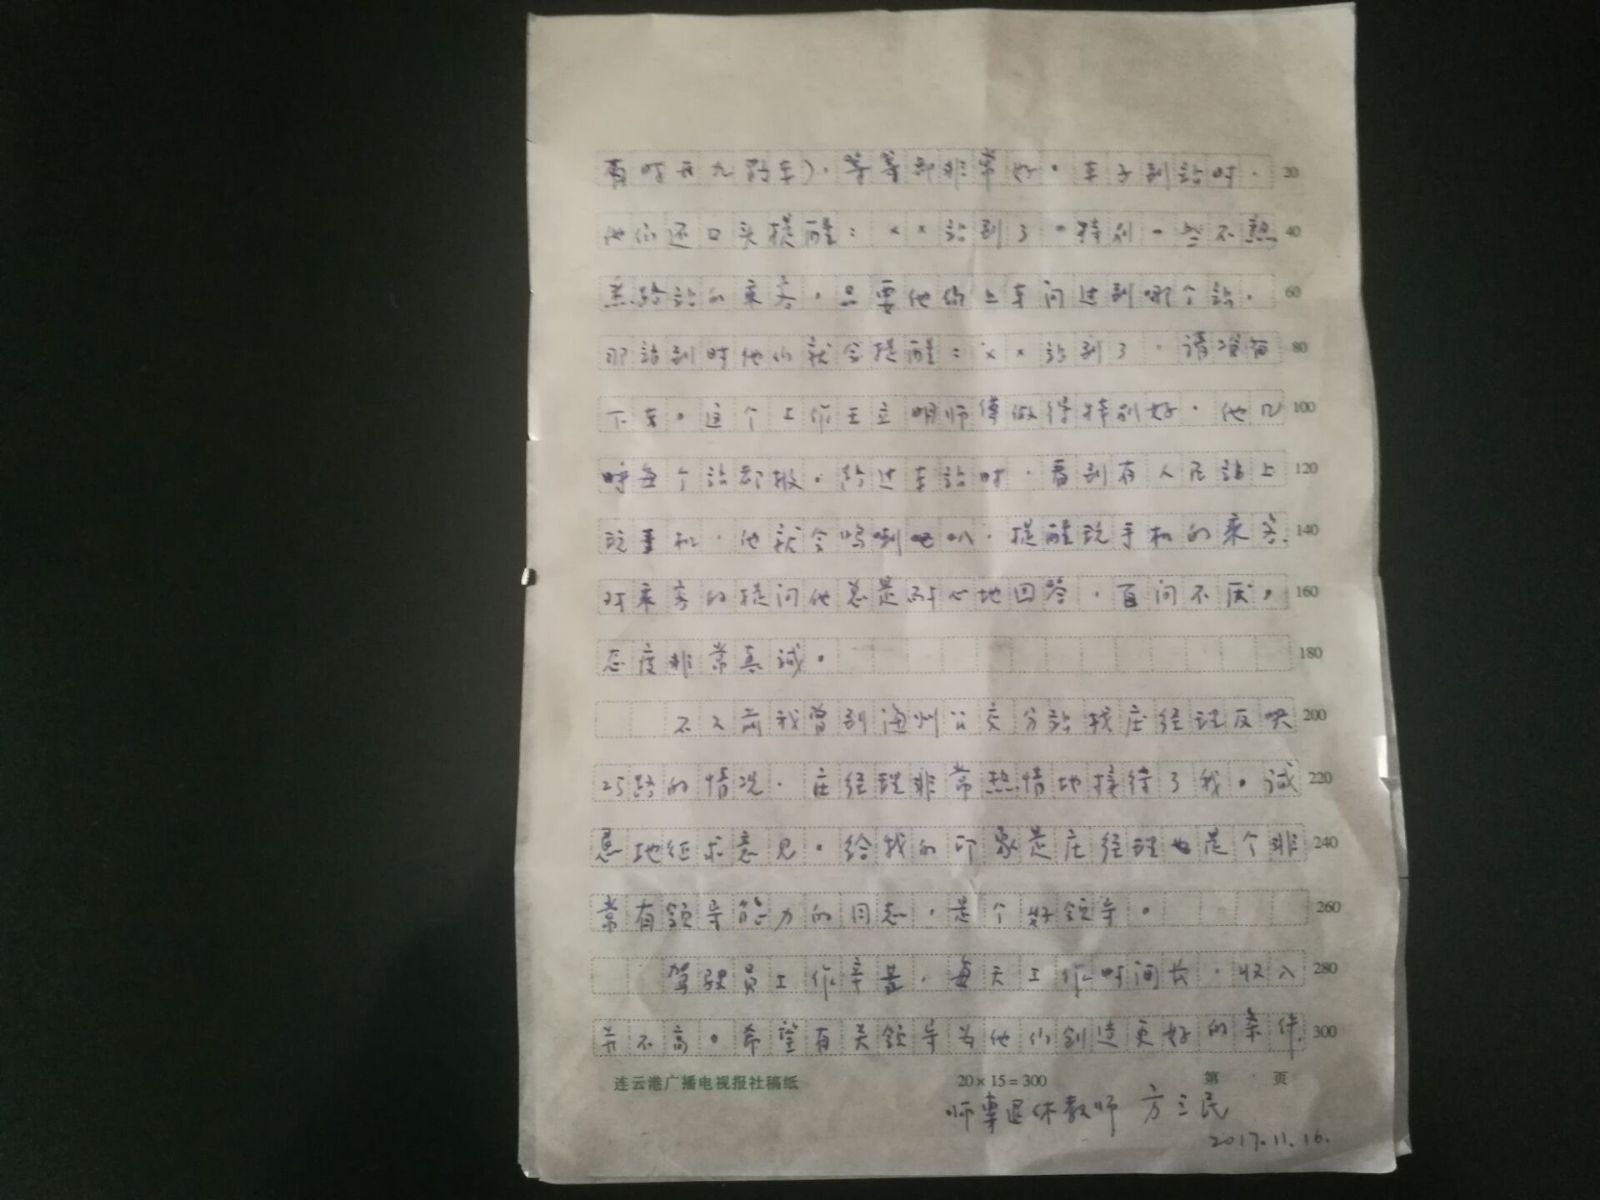 有时开九路车),等等都非常好。车子到站时, 20
他们还口头提醒:××站到了。特别一些不熟 40
悉路站的乘客,只要他们上车问过到哪个站, 60
那站到时他们就会提醒:××站到了,请准备 80
下车。这个工作王立明师傅做得特别好,他几 100
呼每个站都报。经过车站时,看到有人在站上 120
玩手机,他就会鸣喇叭,提醒玩手机的乘客, 140
对乘客的提问他总是耐心地回答,百问不厌, 160
态度非常真诚。 180
不久前我曾到海州公交分站找庄经理反映 200
25路的情况,庄经理非常热情地接待了我。诚 220
恳地征求意见。给我的印象是庄经理也是个非 240
常有领导能力的同志,是个好领导。 260
驾驶员工作辛苦,每天工作时间长,收入 280
并不高。希望有关领导为他们创造更好的条件。 300
连云港广播电视报社稿纸 20×15=300 第 页
师专退休教师 方三民
2017.11.16.